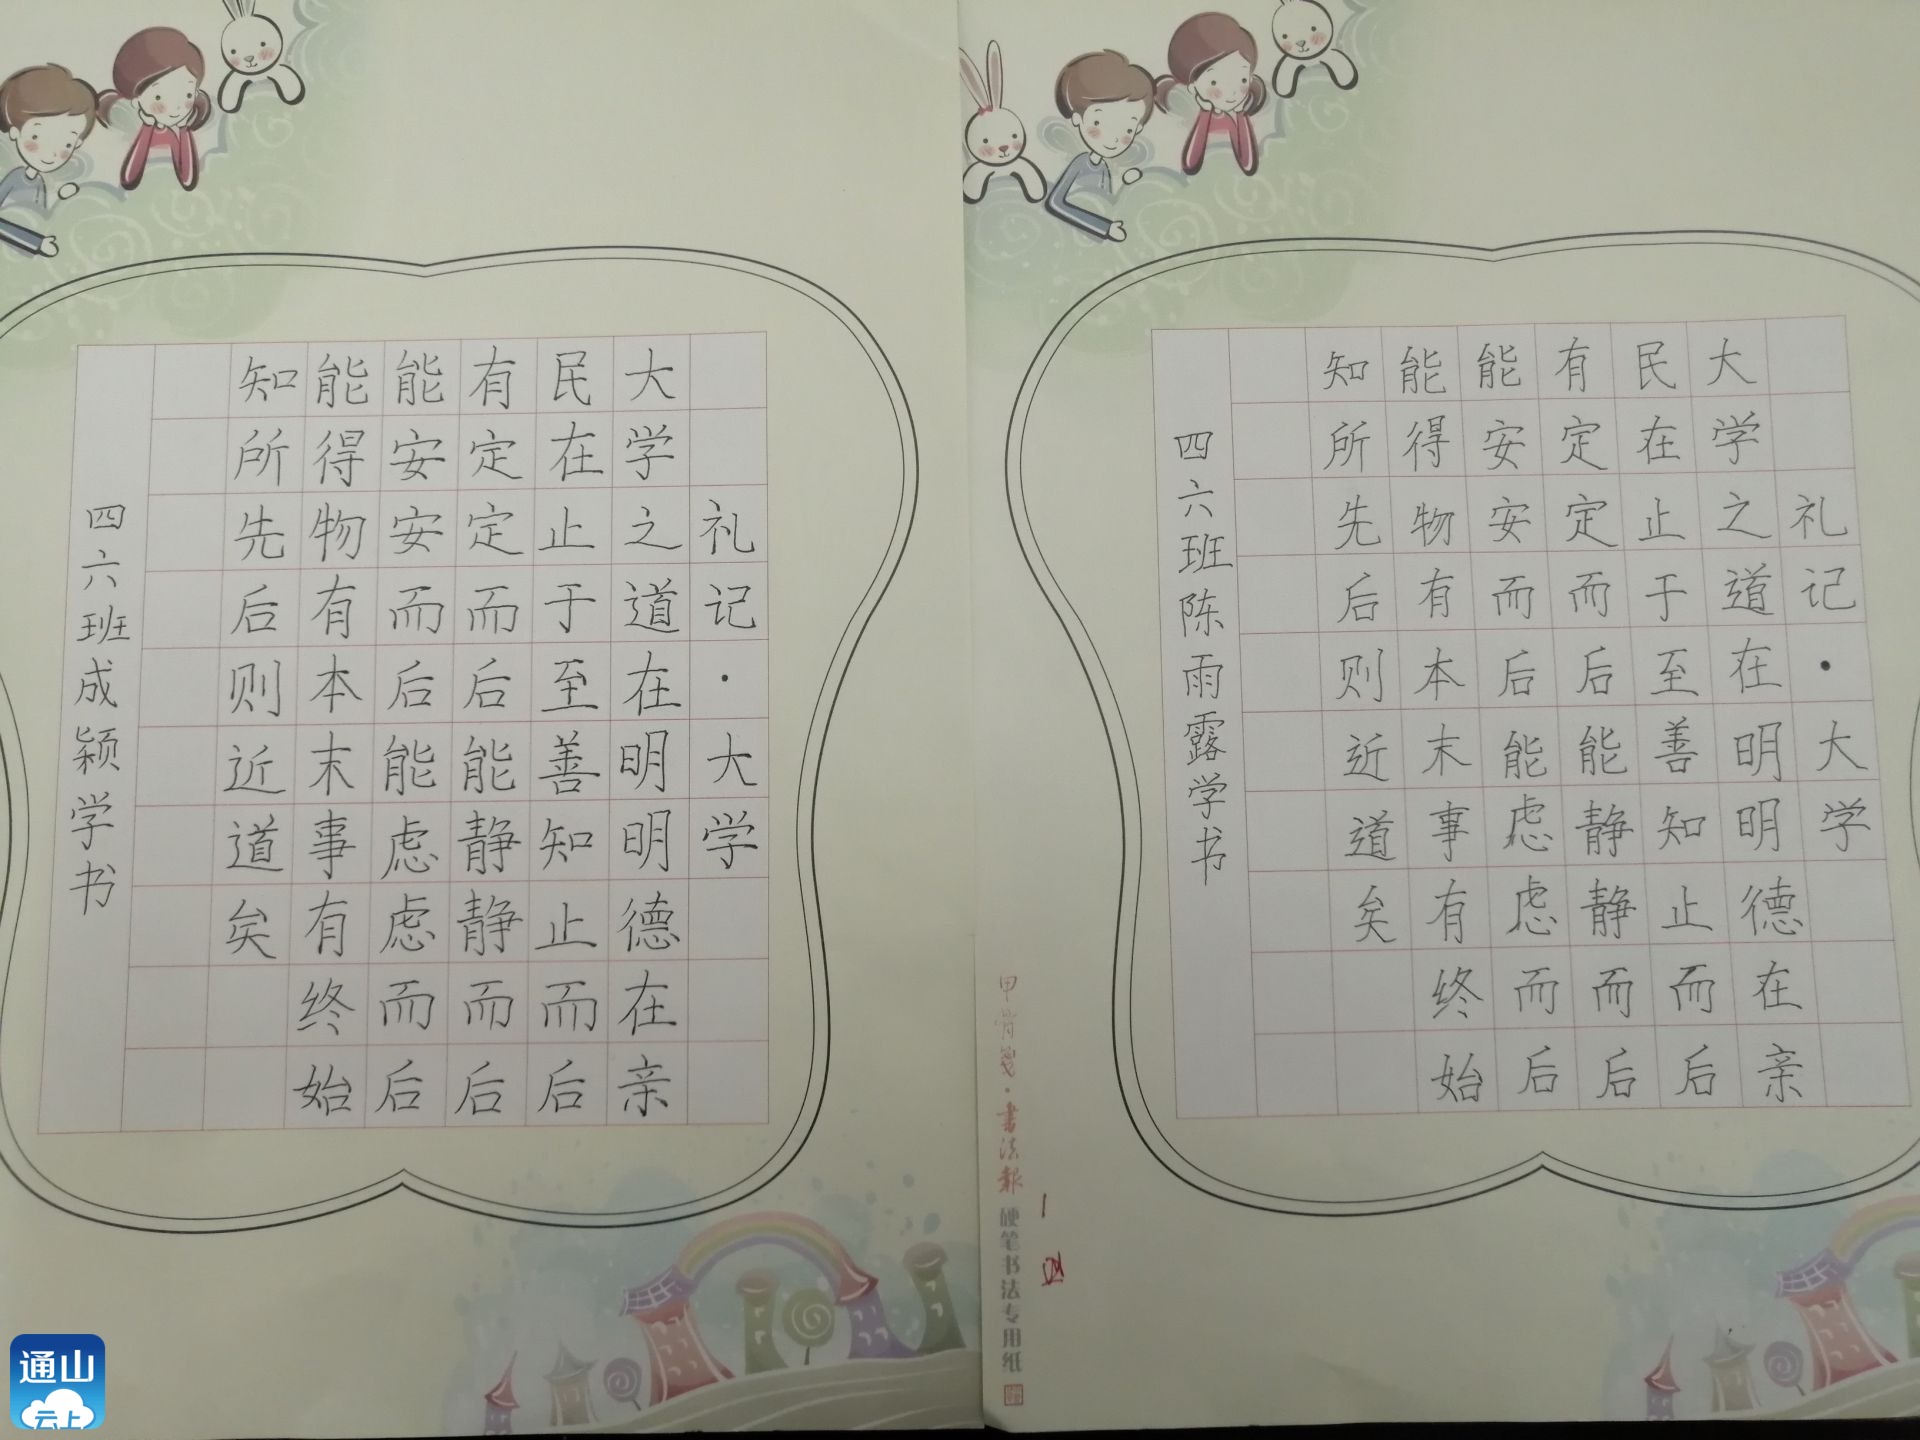 礼记·大学
大学之道在明明德在亲
民在止于至善知止而后
有定定而后能静静而后
能安安而后能虑虑而后
能得物有本末事有终始
知所先后则近道矣
四六班成颖学书
礼记·大学
大学之道在明明德在亲
民在止于至善知止而后
有定定而后能静静而后
能安安而后能虑虑而后
能得物有本末事有终始
知所先后则近道矣
四六班陈雨露学书
甲骨笺·書法報 硬笔书法专用纸
通山
云上